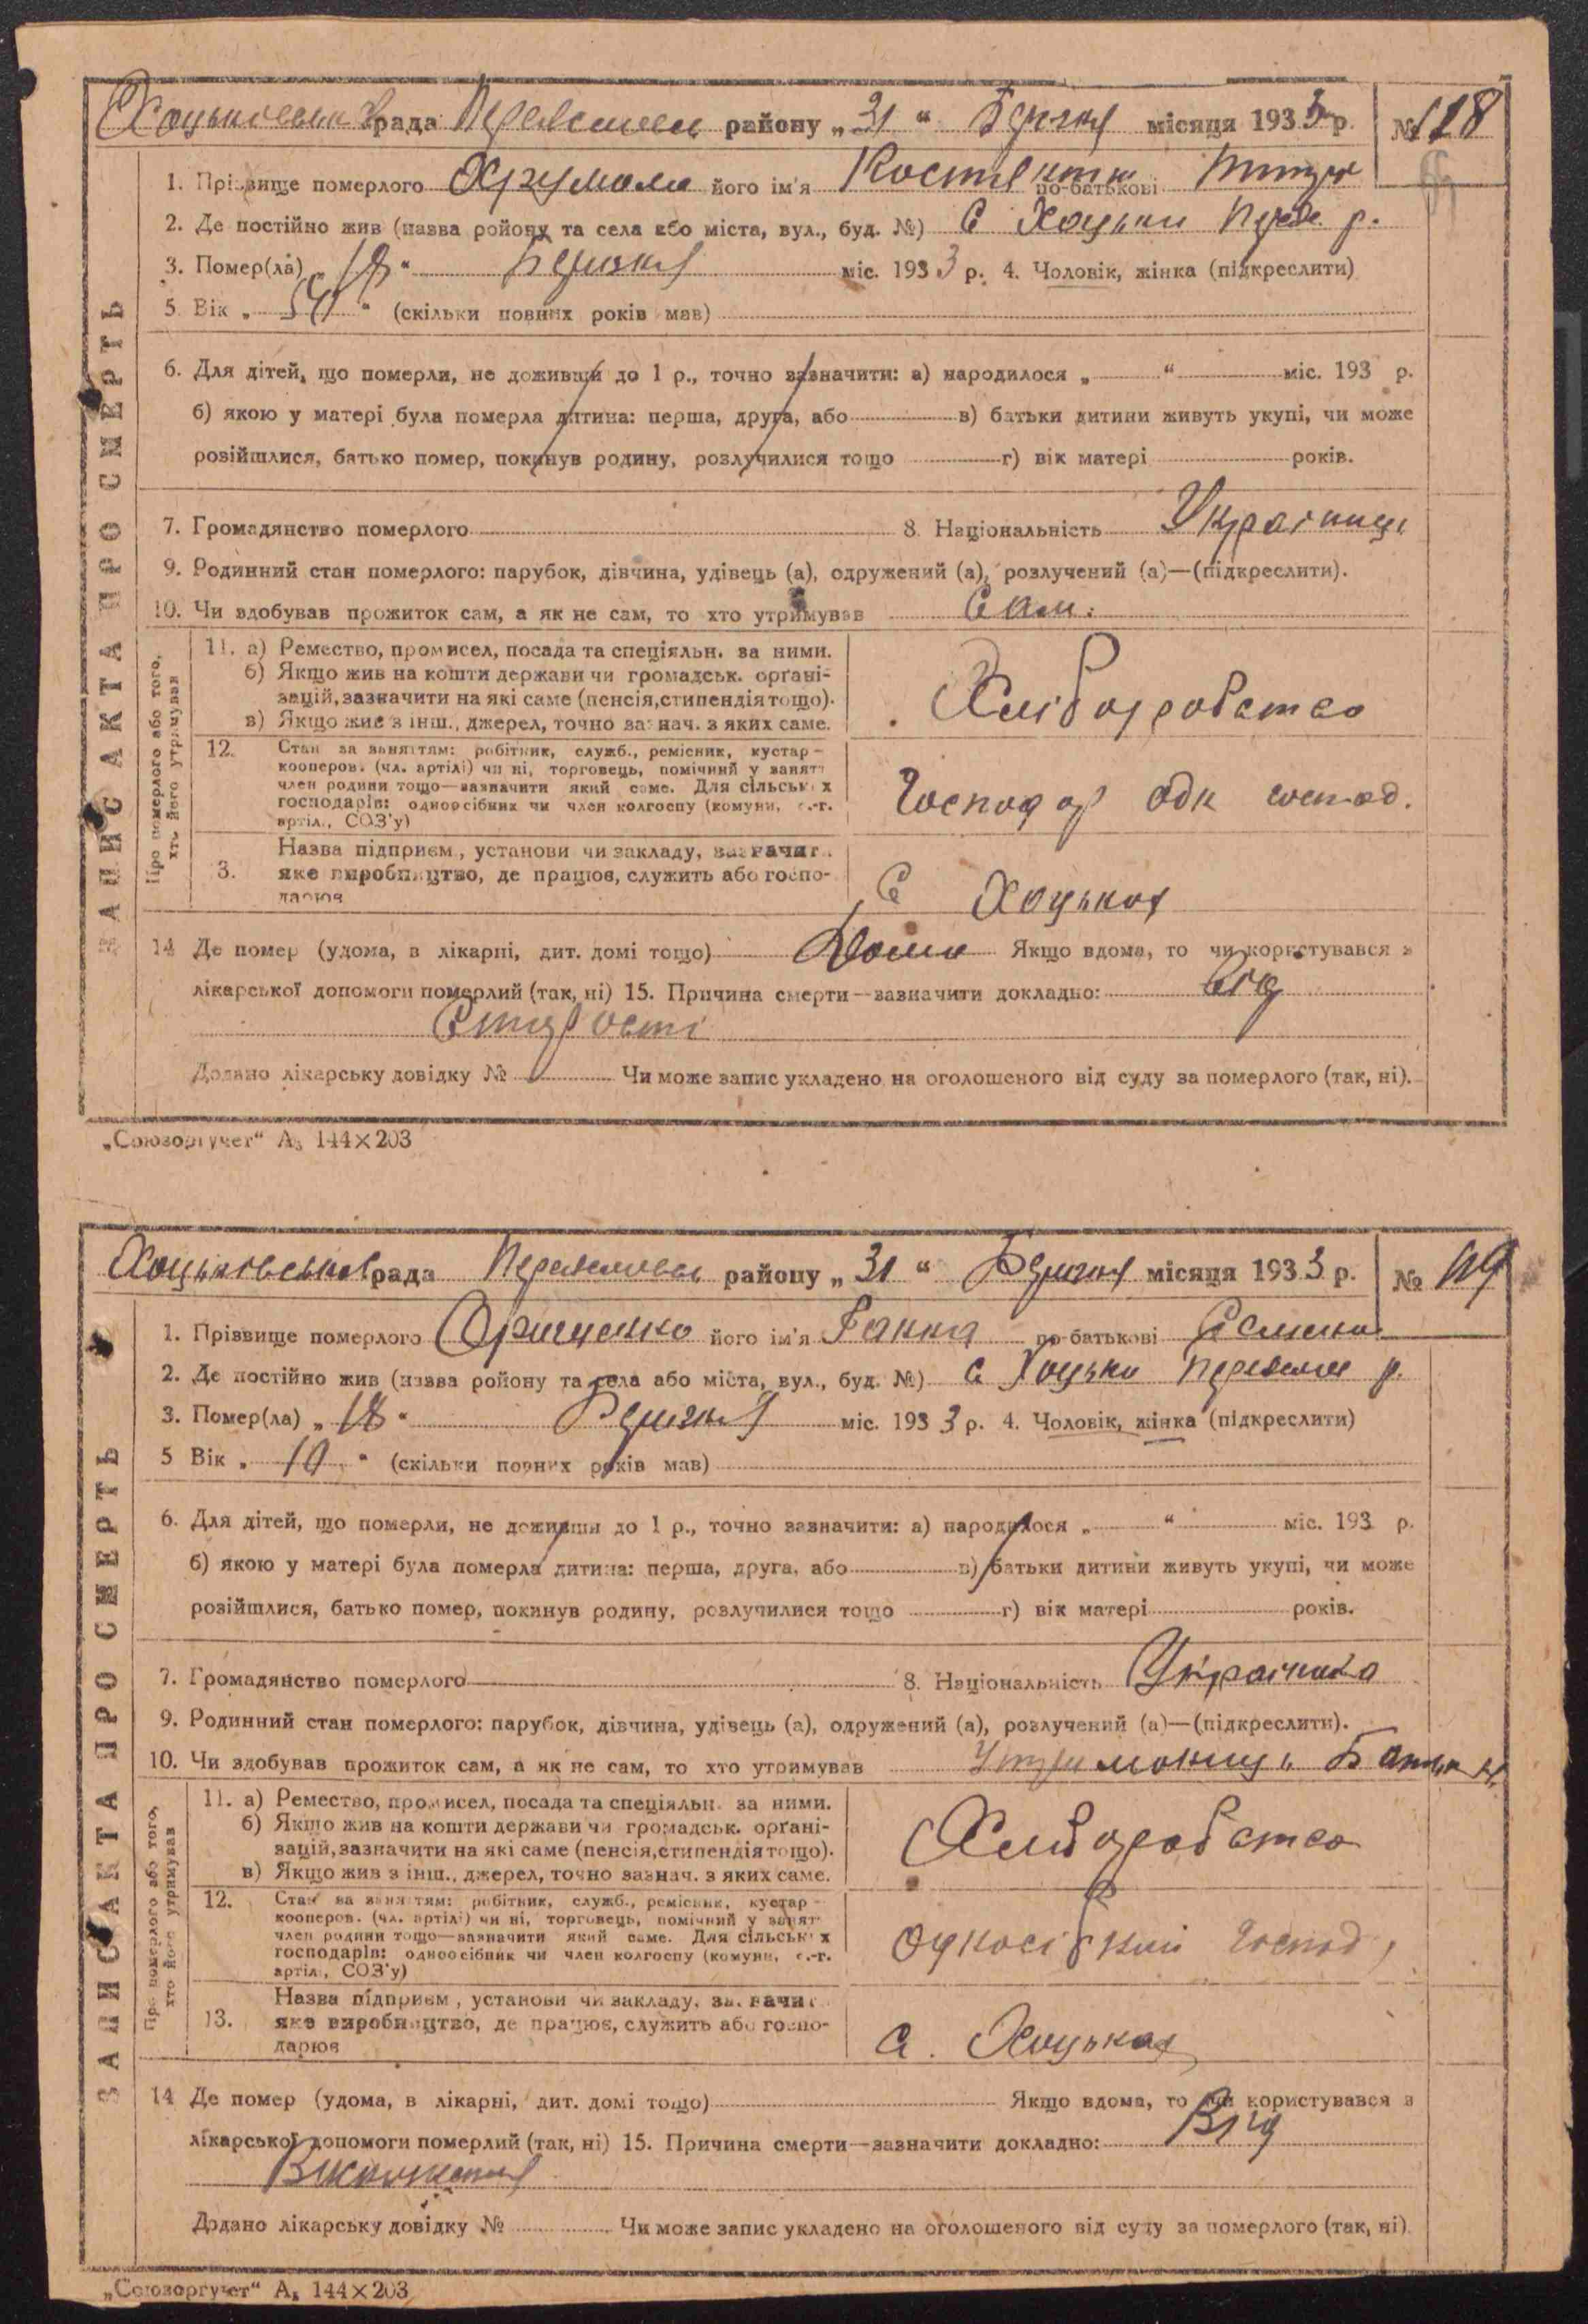 Хоцьковська рада Переяслівськ району „31“ Березня місяця 1933 р. № 118
1. Прізвище померлого його ім'я Костянтин по-батькові
2. Де постійно жив (назва ройону та села або міста, вул., буд. №) С Хоцьки Переясл. р.
3. Помер(ла) „18“ Березня міс. 1933 р. 4. Чоловік, жінка (підкреслити)
5 Вік „54“ (скільки повних років мав)
6. Для дітей, що померли, не доживши до 1 р., точно зазначити: а) народилося „ “ міс. 193 р.
б) якою у матері була померла дитина: перша, друга, або в) батьки дитини живуть укупі, чи може
розійшлися, батько помер, покинув родину, розлучилися тощо г) вік матері років.
7. Громадянство померлого 8. Національність Українець
9. Родинний стан померлого: парубок, дівчина, удівець (а), одружений (а), розлучений (а)—(підкреслити).
10. Чи здобував прожиток сам, а як не сам, то хто утримував Сам.
ЗАПИС АКТА ПРО СМЕРТЬ
Про померлого або того, хть його утримував
11. а) Ремество, промисел, посада та спеціяльн. за ними.
б) Якщо жив на кошти держави чи громадськ. орґані-
зацій, зазначити на які саме (пенсія, стипендія тощо).
в) Якщо жив з інш., джерел, точно зазнач. з яких саме.
Хліборобство
12. Стан за заняттям: робітник, служб., ремісник, кустар -
кооперов. (чл. артілі) чи ні, торговець, помічний у занятт
член родини тощо—зазначити який саме. Для сільських
господарів: одноосібник чи член колгоспу (комуни, с.-г.
артіл., СОЗ'у)
Господар одн господ.
3. Назва підприєм., установи чи закладу, зазначит.
яке виробництво, де працюв, служить або госпо-
дарюв
С Хоцьках
14 Де помер (удома, в лікарні, дит. домі тощо) Дома Якщо вдома, то чи користувався з
лікарської допомоги померлий (так, ні) 15. Причина смерти—зазначити докладно: Від
Старості
Додано лікарську довідку № Чи може запис укладено на оголошеного від суду за померлого (так, ні).
„Союзоргучет“ А₅ 144×203
Хоцьківська рада Переяславськ району „31“ Березня місяця 1933 р. № 119
1. Прізвище померлого його ім'я Ганна по-батькові
2. Де постійно жив (назва ройону та села або міста, вул., буд. №) С Хоцьки Переясл р.
3. Помер(ла) „18“ Березня міс. 1933 р. 4. Чоловік, жінка (підкреслити)
5 Вік „10“ (скільки повних років мав)
6. Для дітей, що померли, не доживши до 1 р., точно зазначити: а) народилося „ “ міс. 193 р.
б) якою у матері була померла дитина: перша, друга, або в) батьки дитини живуть укупі, чи може
розійшлися, батько помер, покинув родину, розлучилися тощо г) вік матері років.
7. Громадянство померлого 8. Національність Українка
9. Родинний стан померлого: парубок, дівчина, удівець (а), одружений (а), розлучений (а)—(підкреслити).
10. Чи здобував прожиток сам, а як не сам, то хто утримував Утриманець Батька
ЗАПИС АКТА ПРО СМЕРТЬ
Про померлого або того, хто його утримував
11. а) Ремество, промисел, посада та спеціяльн. за ними.
б) Якщо жив на кошти держави чи громадськ. орґані-
зацій, зазначити на які саме (пенсія, стипендія тощо).
в) Якщо жив з інш., джерел, точно зазнач. з яких саме.
Хліборобство
12. Стан за заняттям: робітник, служб., ремісник, кустар -
кооперов. (чл. артілі) чи ні, торговець, помічний у занят
член родини тощо—зазначити який саме. Для сільських
господарів: одноосібник чи член колгоспу (комуни, с.-г.
артіл., СОЗ'у)
Одноосібний господ,
13. Назва підприєм, установи чи закладу, зазначит
яке виробництво, де працює, служить або госпо-
дарюв
С. Хоцьках
14 Де помер (удома, в лікарні, дит. домі тощо) Якщо вдома, то чи користувався з
лікарської допомоги померлий (так, ні) 15. Причина смерти—зазначити докладно: Від
Додано лікарську довідку № Чи може запис укладено на оголошеного від суду за померлого (так, ні).
„Союзоргучет“ А₅ 144×203